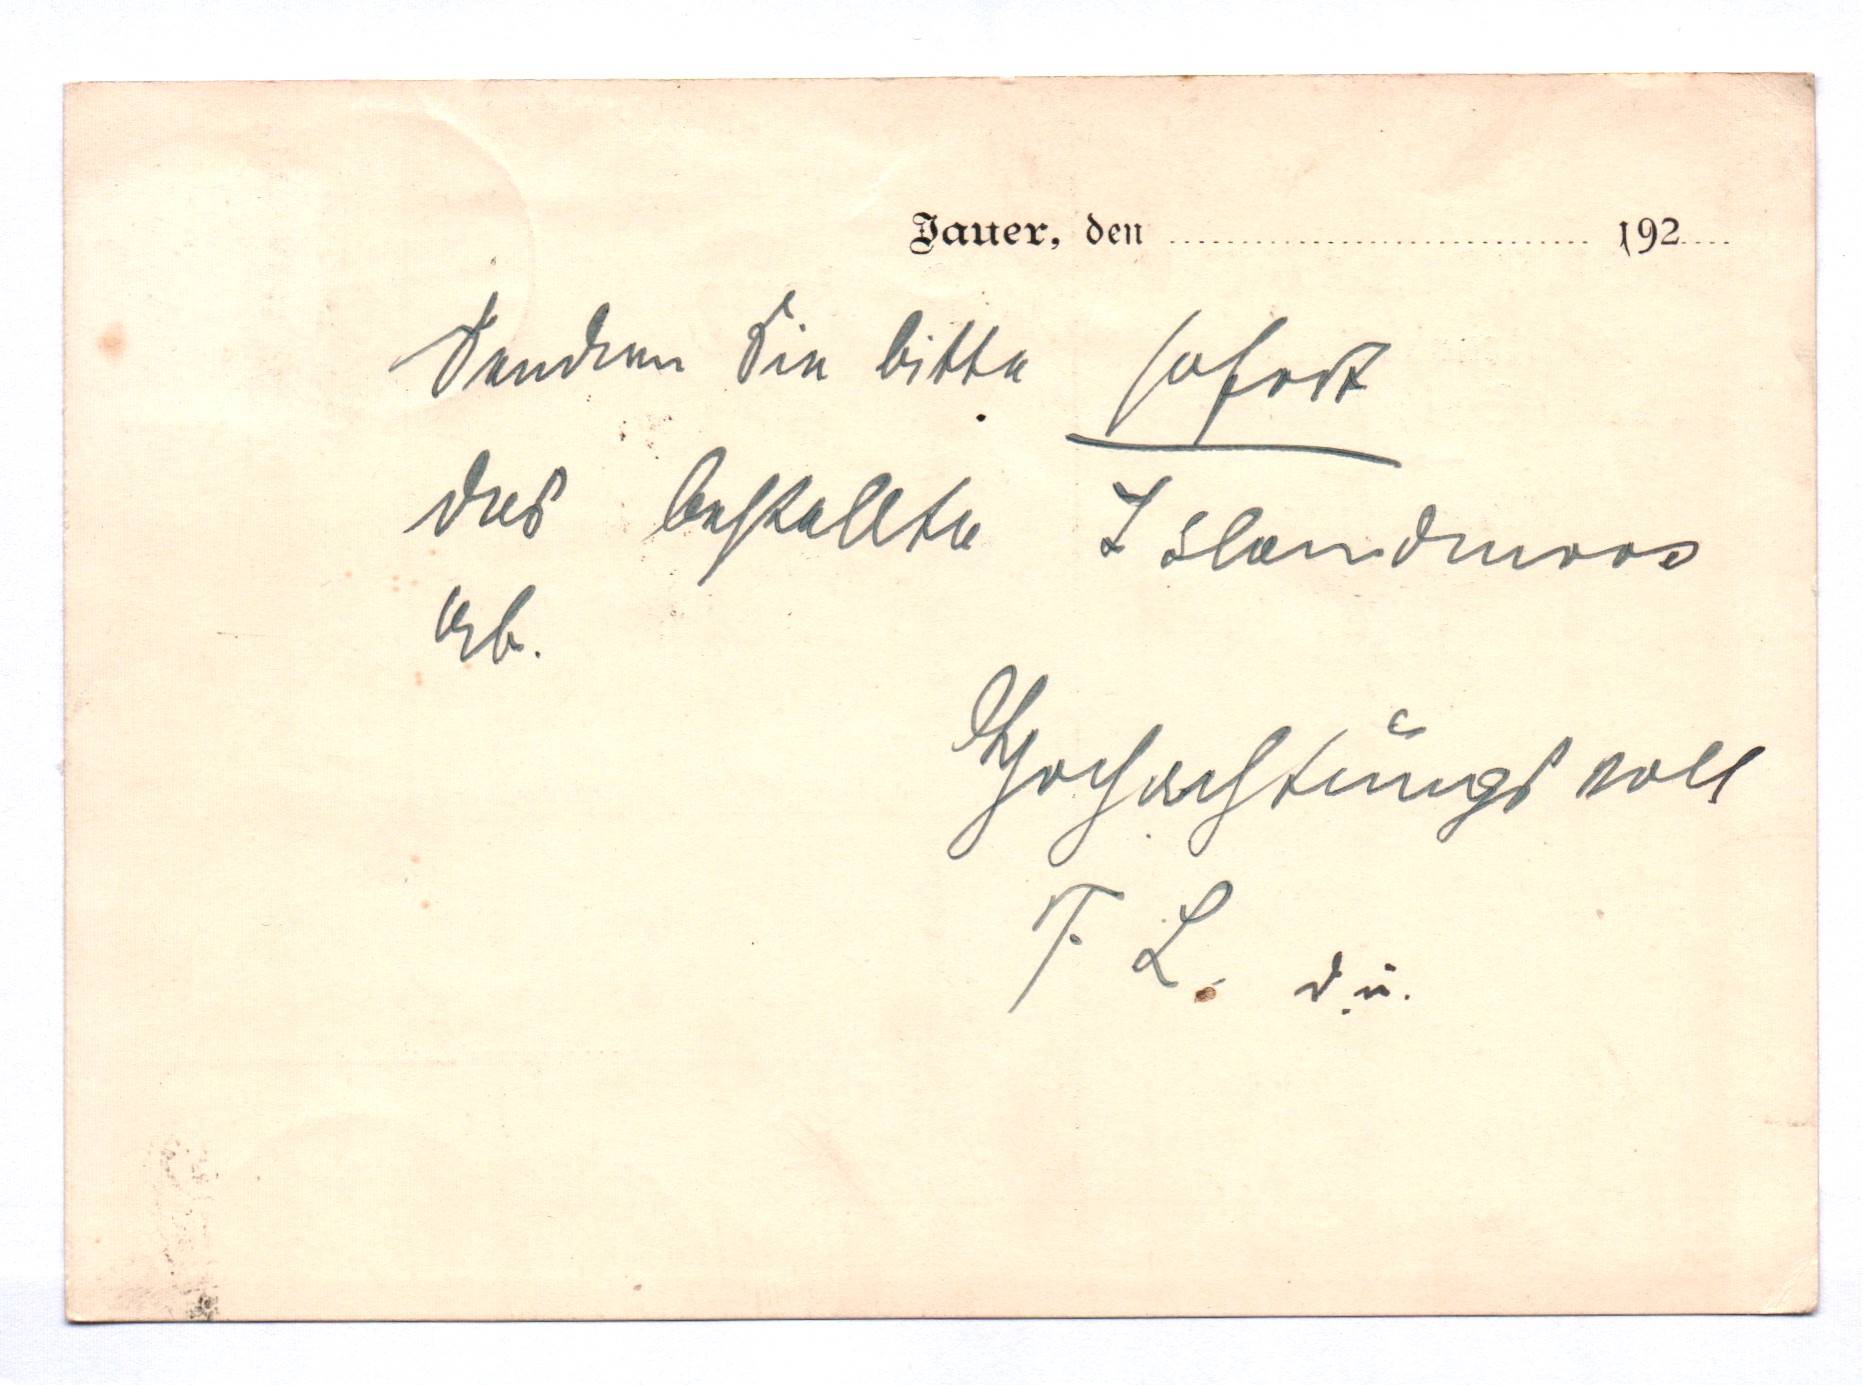 Jauer, den 192
Senden Sie bitte sofort
das bestellte Islandmoos
ab.
Hochachtungsvoll
T. L. d. u.